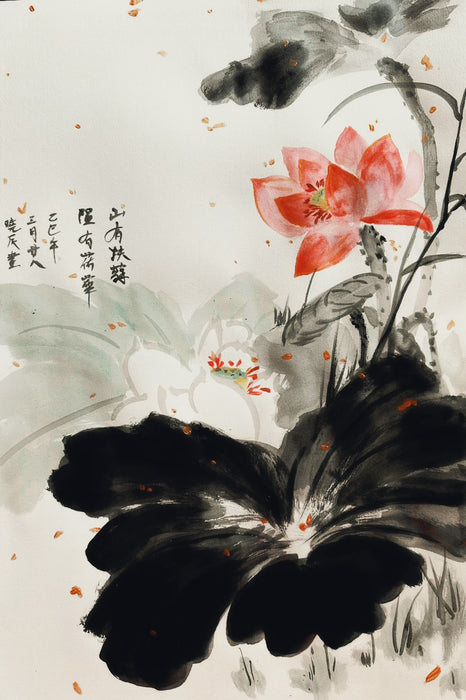 山有扶蘇
隰有荷華
乙巳年
三月廿八